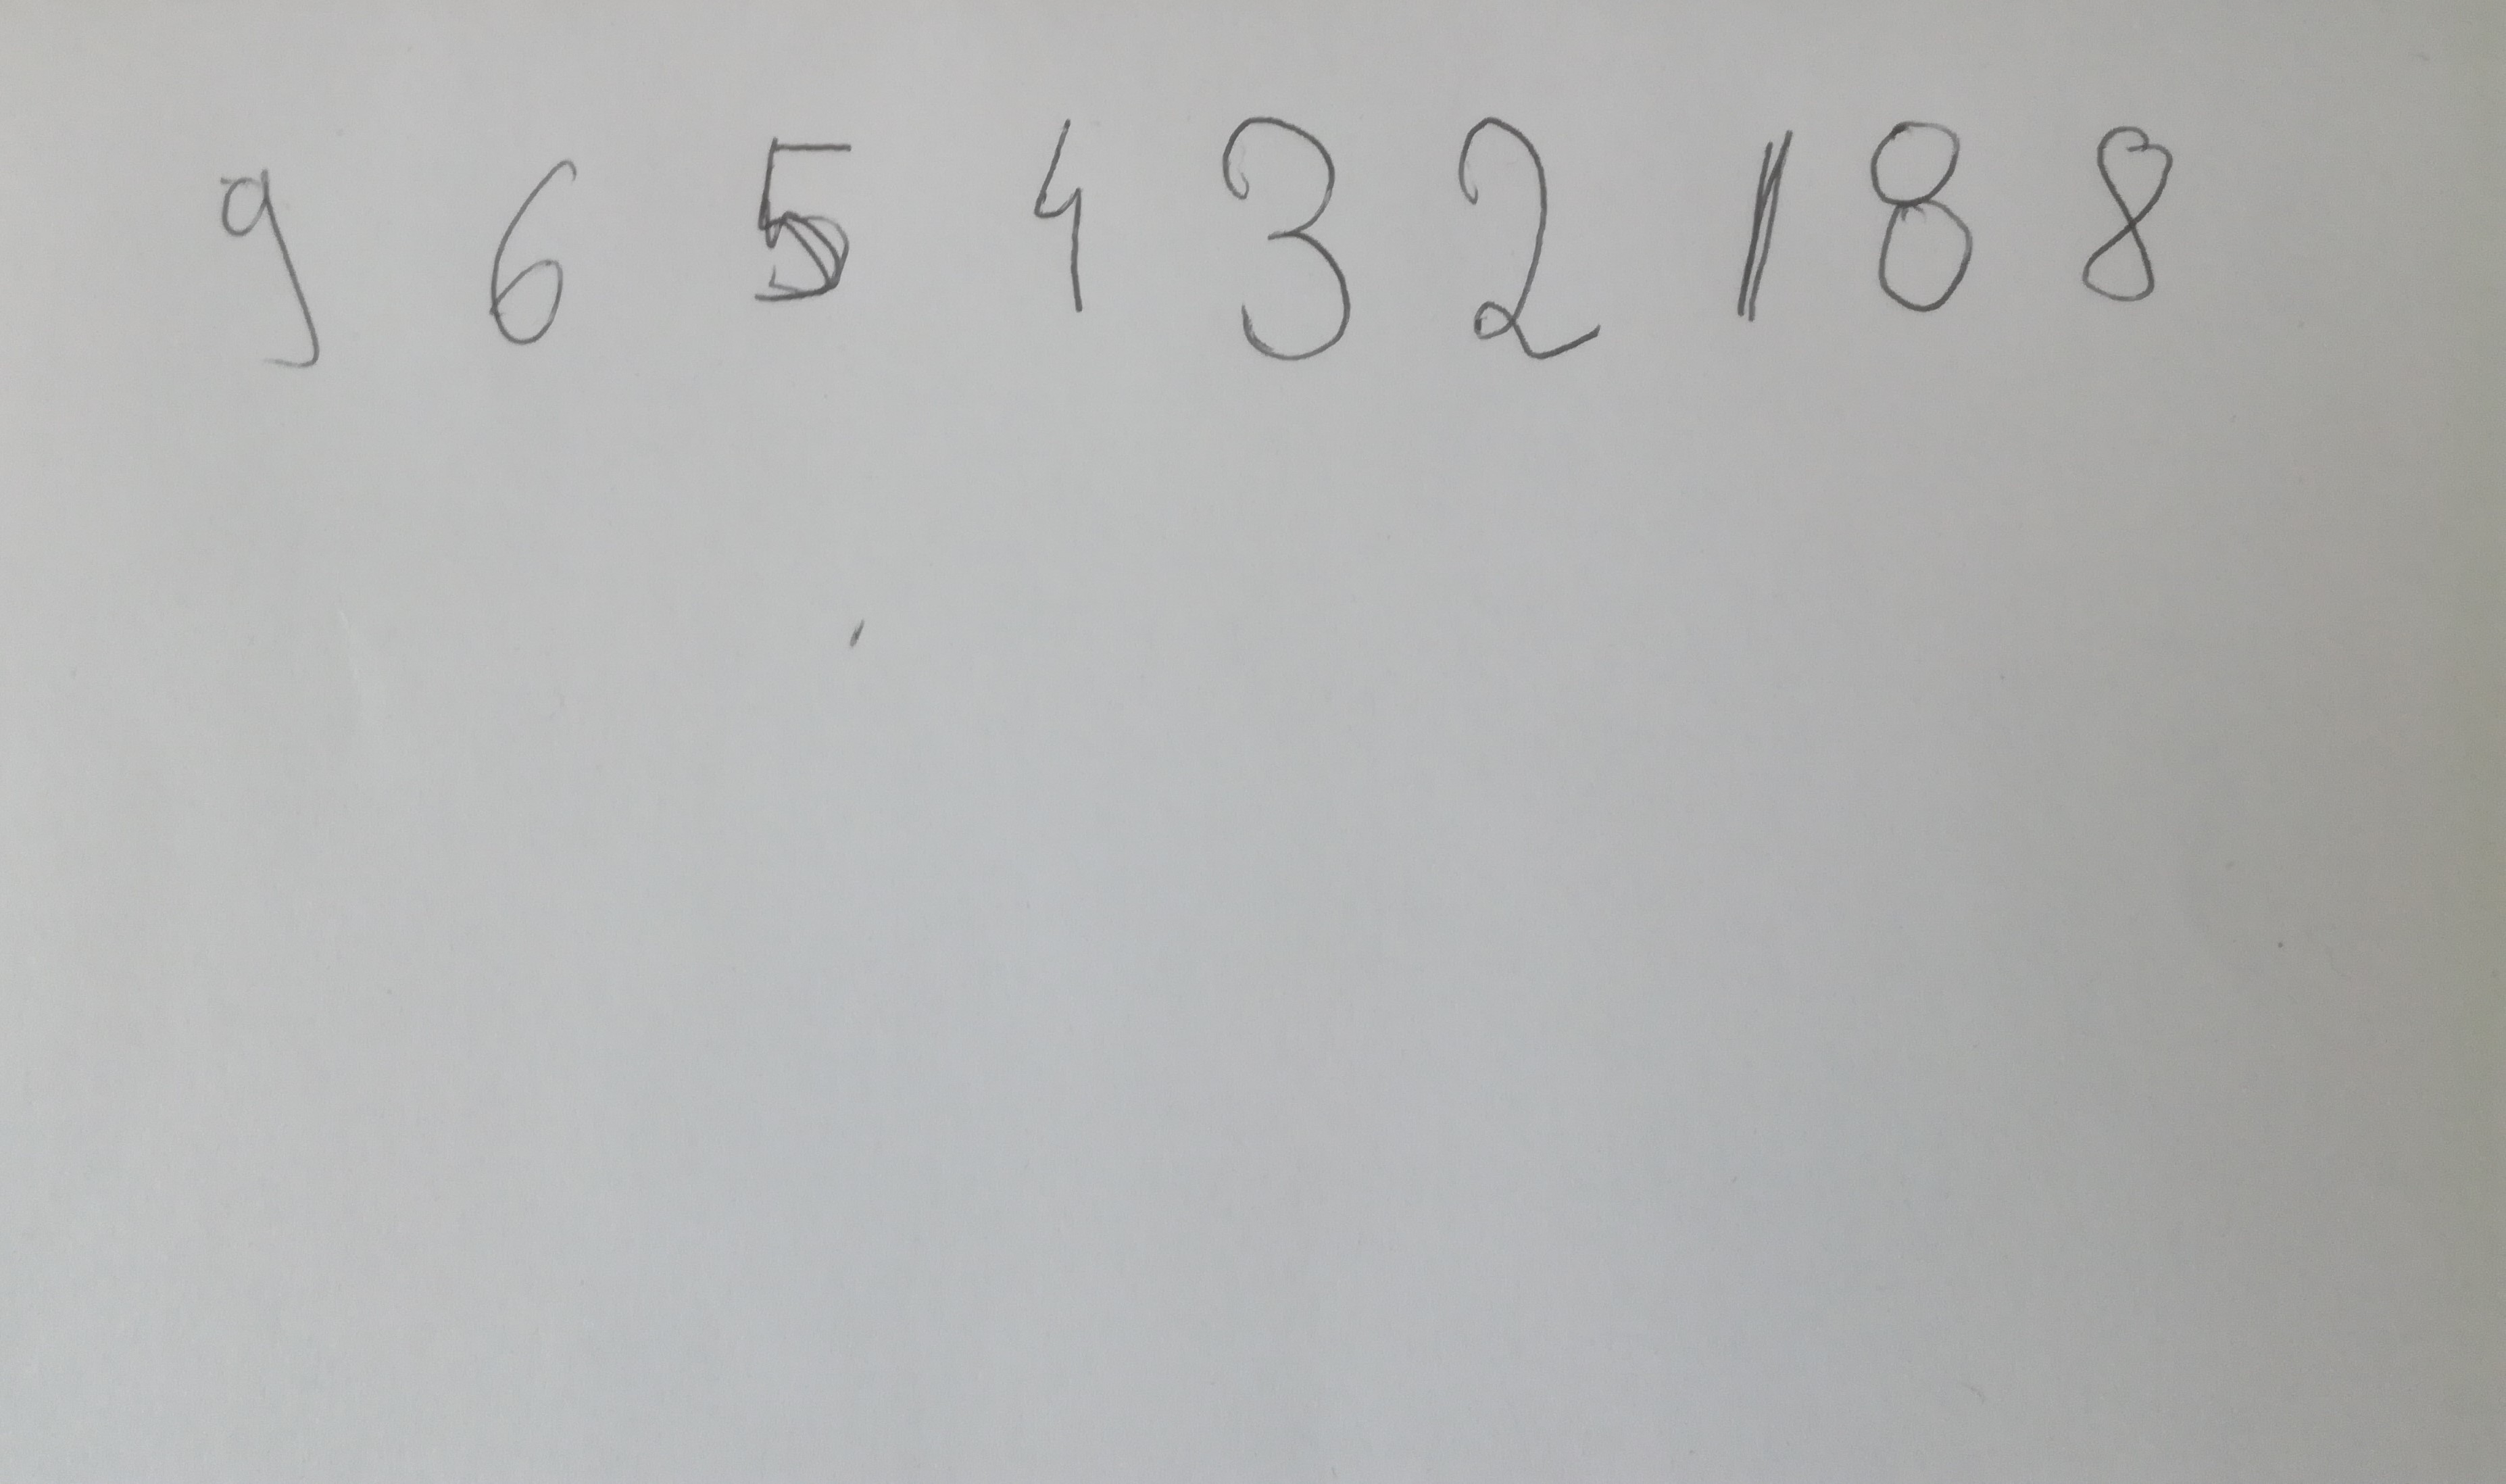 9 6 5 4 3 2 1 8 8